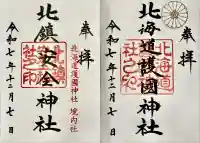 奉拝
北鎮安全神社
北海道護國神社 境内社
令和七年十二月七日
奉拝
北海道護國神社
北海道護國神社之印
令和七年十二月七日